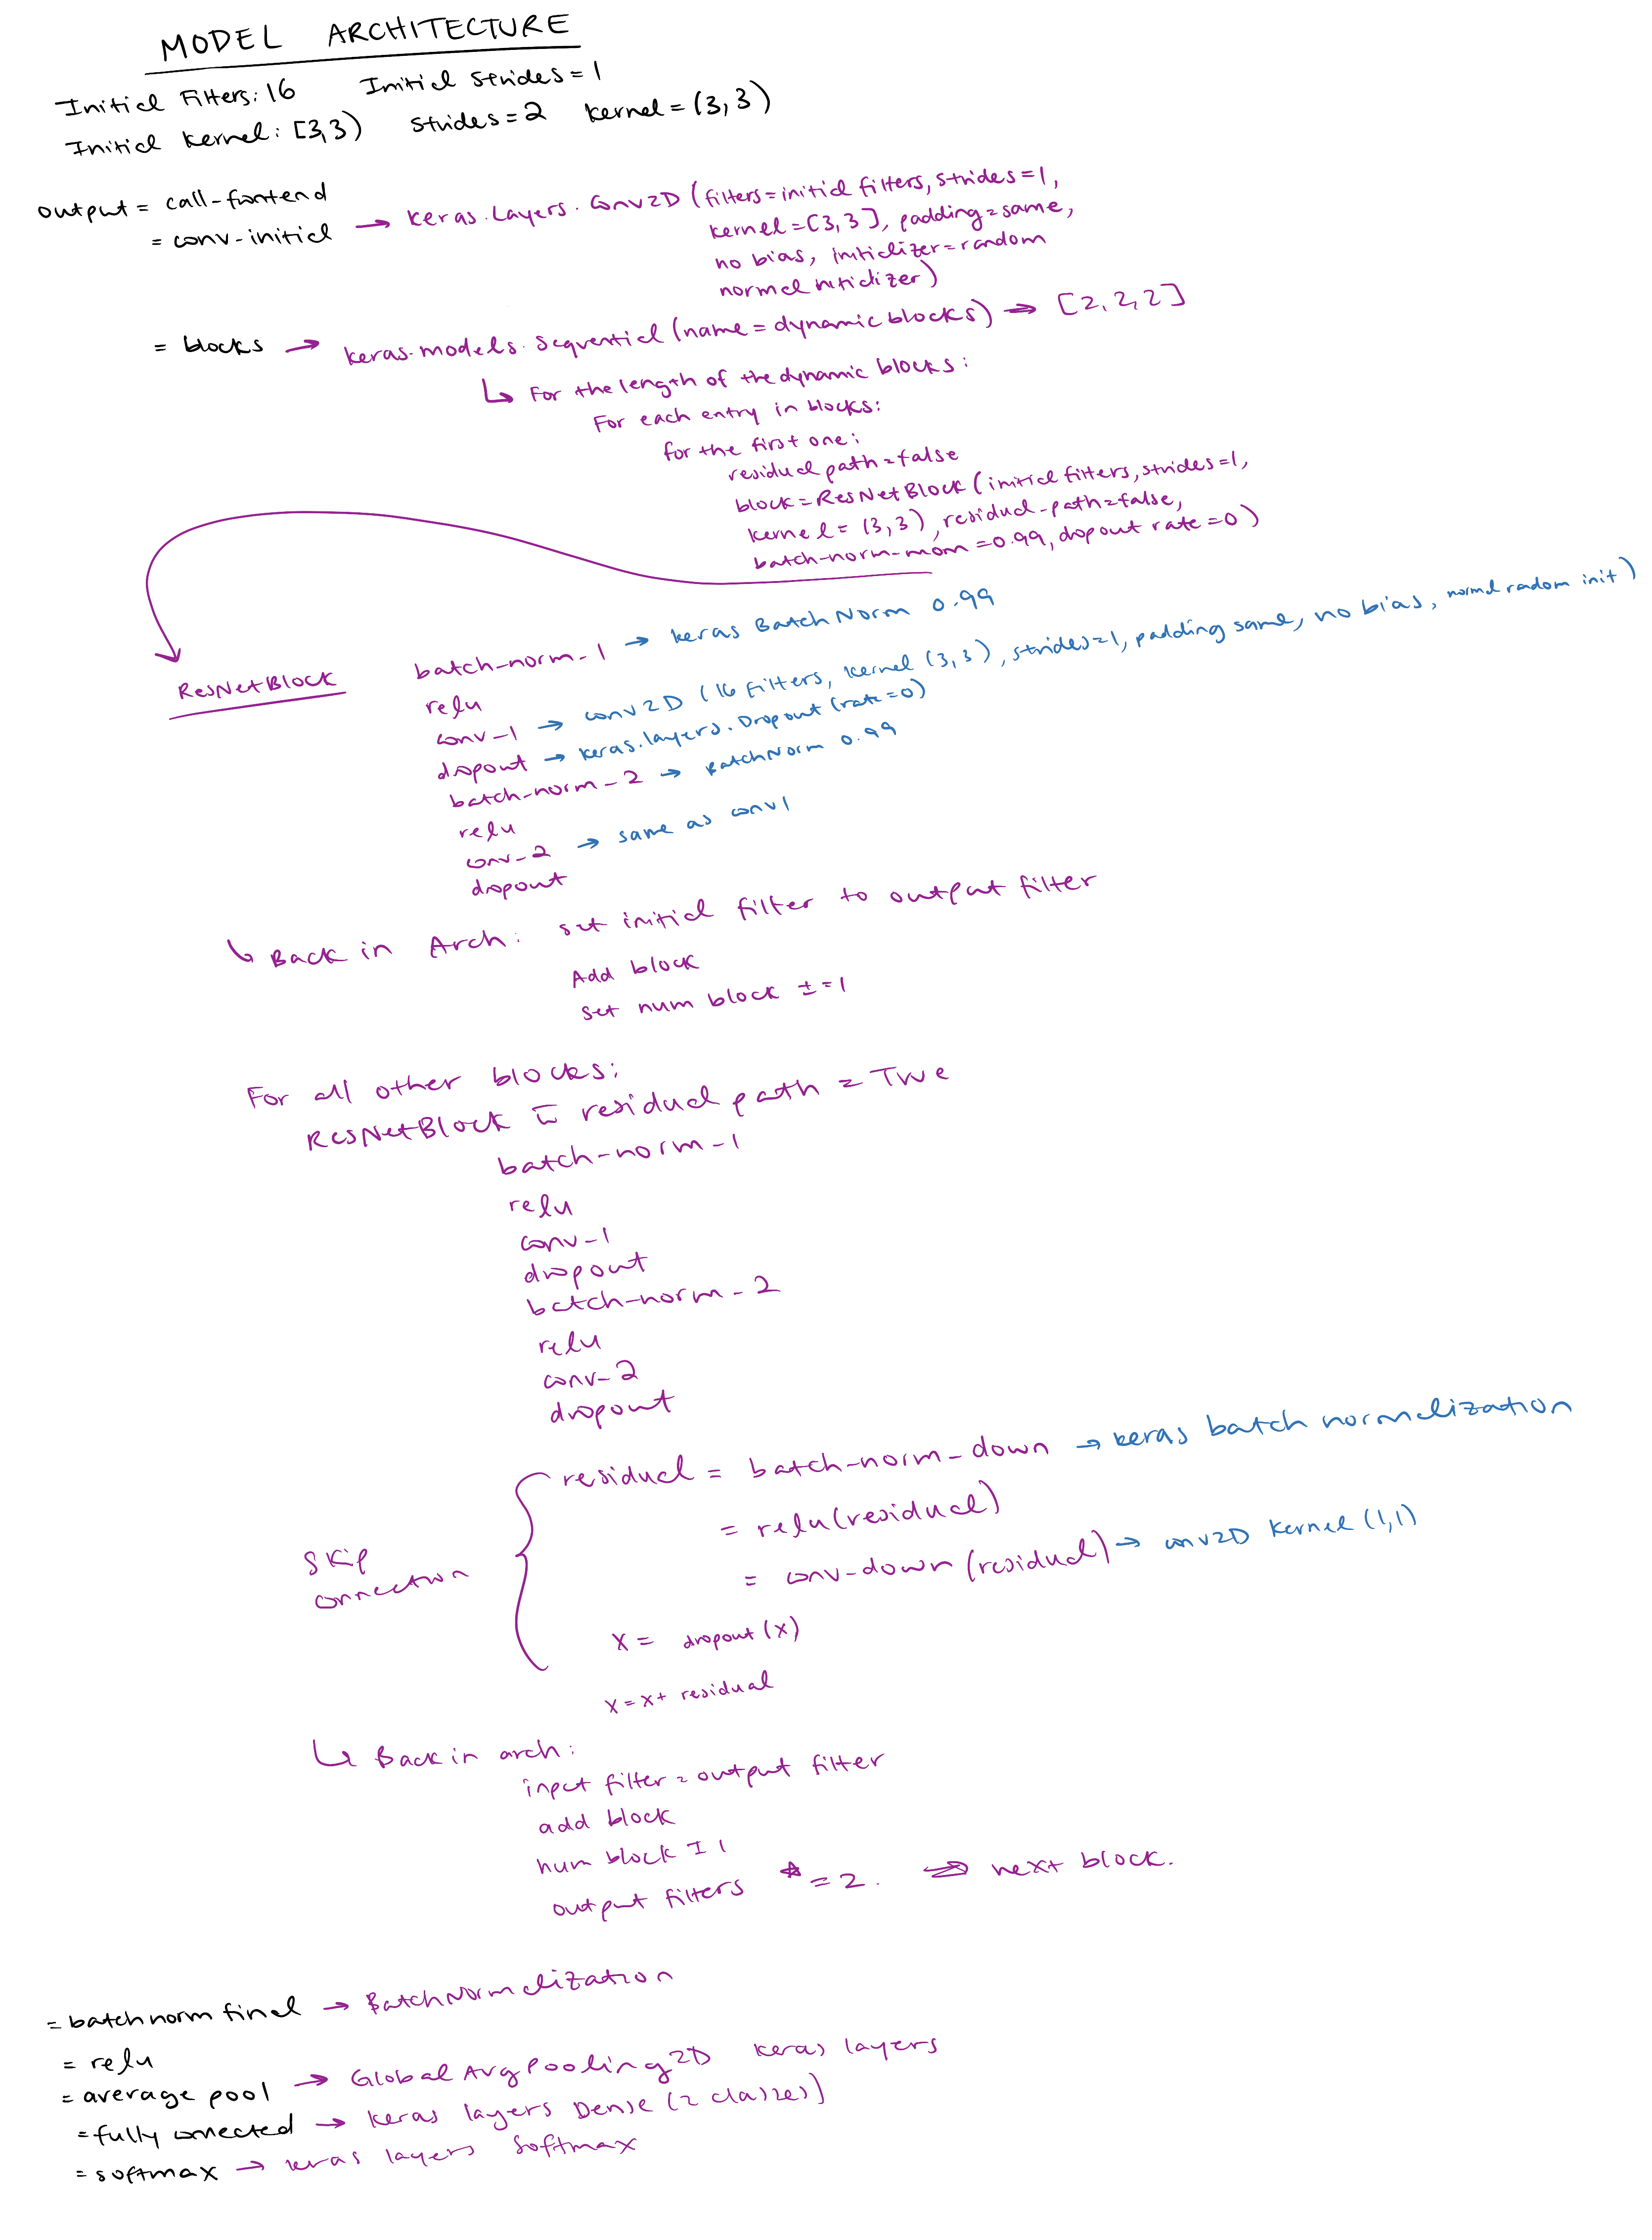 MODEL ARCHITECTURE
Initial Filters: 16 Initial strides = 1
Initial kernel: [3,3) strides = 2 kernel = (3,3)
output = call-frontend
= conv-initial → keras.Layers.Conv2D (filters = initial filters, strides = 1,
kernel = [3,3], padding = same,
no bias, initializer = random
normal initializer)
= blocks → keras.models.Sequential (name = dynamic blocks) → [2,2,2]
↳ For the length of the dynamic blocks:
For each entry in blocks:
for the first one:
residual path = false
block = ResNetBlock (initial filters, strides = 1,
kernel = (3,3), residual-path = false,
batch-norm-mom = 0.99, dropout rate = 0)
ResNetBlock
batch-norm-1 → keras BatchNorm 0.99
relu
conv-1 → conv2D (16 filters, kernel (3,3), strides = 1, padding same, no bias, normal radom init)
dropout → keras.layers.Dropout (rate = 0)
batch-norm-2 → BatchNorm 0.99
relu
conv-2 → same as conv1
dropout
↳ Back in Arch: set initial filter to output filter
Add block
set num block ±=1
For all other blocks:
ResNetBlock residual path = True
batch-norm-1
relu
conv-1
dropout
batch-norm-2
relu
conv-2
dropout
skip connection
residual = batch-norm-down → keras batch normalization
= relu(residual)
= conv-down (residual) → conv2D kernel (1,1)
x = dropout (x)
x = x + residual
↳ Back in arch:
input filter = output filter
add block
num block I 1
output filters *=2. → next block.
= batchnorm final → BatchNormalization
= relu
= average pool → GlobalAvgPooling2D keras layers
= fully connected → keras layers Dense (2 classes)]
= softmax → keras layers softmax